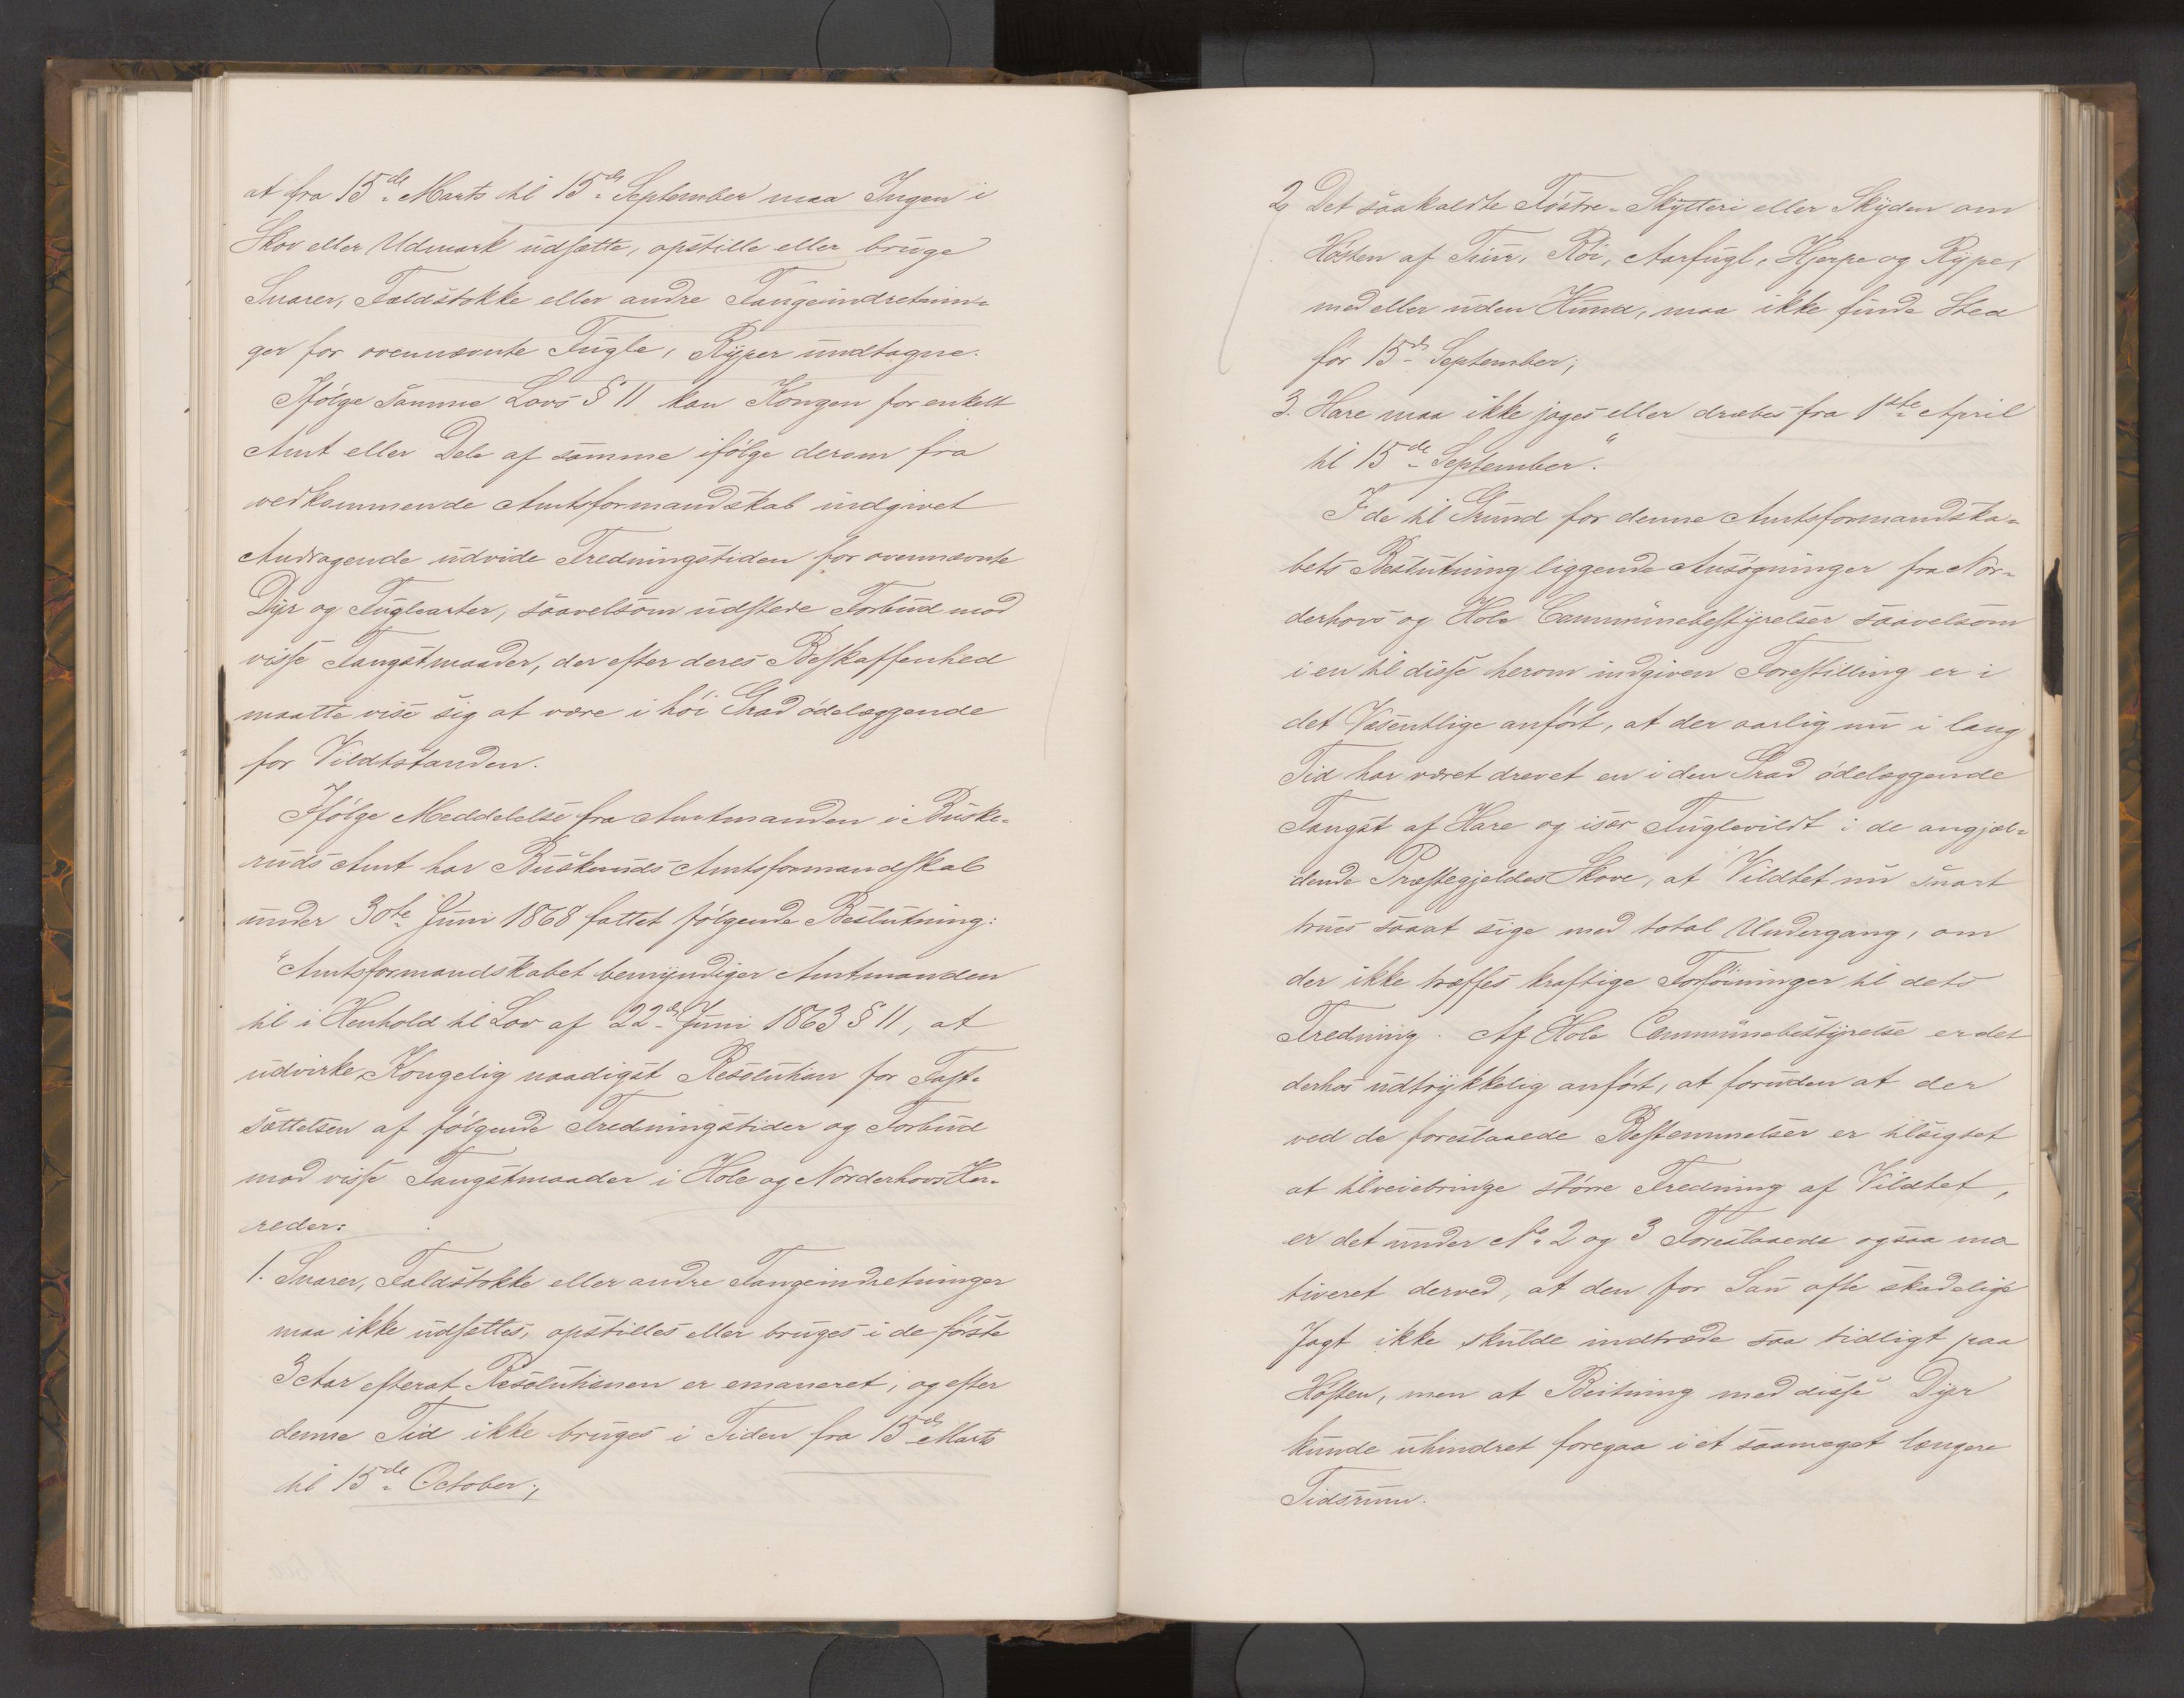 at fra 15de Marts til 15de September maa Ingen i
Skov eller Udmark udsætte, opstille eller bruge
Snarer, Faldstokke eller andre Fangeindretnin-
ger for ovennævnte Fugle, Ryper undtagne.
Ifølge samme Lovs § 11 kan Kongen for enkelt
Amt eller Dele af samme ifølge derom fra
vedkommende Amtsformandskab indgivet
Andragende udvide Fredningstiden for ovennævnte
Dyr og Fuglearter, saavelsom udstede Forbud mod
visse Fangstmaader, der efter deres Beskaffenhed
maatte vise sig at være i høi Grad ødelæggende
for Vildtstanden.
Ifølge Meddelelse fra Amtmanden i Buske-
ruds Amt har Buskeruds Amtsformandskab
under 30te Juni 1868 fattet følgende Beslutning:
"Amtsformandskabet bemyndiger Amtmanden
til i Henhold til Lov af 22de Juni 1863 § 11, at
udvirke Kongelig naadigst Resolution for Fast-
sættelsen af følgende Fredningstider og Forbud
mod visse Fangstmaader i Hole og Norderhovs Her-
reder:
1. Snarer, Faldstokke eller andre Fangeindretninger
maa ikke udsættes, opstilles eller bruges i de første
3 Aar efterat Resolutionen er emaneret, og efter
denne Tid ikke bruges i Tiden fra 15de Marts
til 15de October;
2, Det saakaldte Føstre-Skytteri eller Skyden om
Høsten af Tiur, Røi, Aarfugl, Hjerpe og Rype,
med eller uden Hund, maa ikke finde Sted
før 15de September;
3. Hare maa ikke jages eller dræbes fra 1ste April
til 15de September."
I de til Grund for denne Amtsformandska-
bets Beslutning liggende Ansøgninger fra Nor-
derhovs og Hole Communebestyrelser saavelsom
i en til disse herom indgiven Forestilling er i
det Væsentlige anført, at der aarlig nu i lang
Tid har været drevet en i den Grad ødelæggende
Fangst af Hare og især Fuglevildt i de angjæl-
dende Præstegjeldes Skove, at Vildtet nu snart
trues saaat sige med total Undergang, om
der ikke træffes kraftige Forføininger til dets
Fredning. Af Hole Communebestyrelse er det
derhos udtrykkelig anført, at foruden at der
ved de foreslaaede Bestemmelser er tilsigtet
at tilveiebringe større Fredning af Vildtet,
er det under No 2 og 3 Foreslaaede ogsaa mo
tiveret derved, at den for Sau ofte skadelige
Jagt ikke skulde indtræde saa tidligt paa
Høsten, men at Beitning med disse Dyr
kunde uhindret foregaa i et saameget længere
Tidsrum.